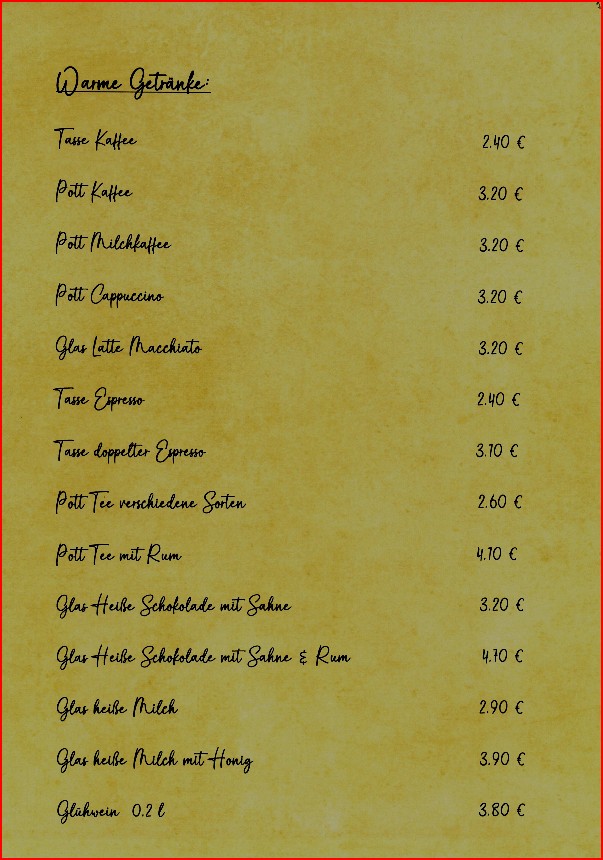 Warme Getränke:
Tasse Kaffee 2.40 €
Pott Kaffee 3.20 €
Pott Milchkaffee 3.20 €
Pott Cappuccino 3.20 €
Glas Latte Macchiato 3.20 €
Tasse Espresso 2.40 €
Tasse doppelter Espresso 3.70 €
Pott Tee verschiedene Sorten 2.60 €
Pott Tee mit Rum 4.10 €
Glas Heiße Schokolade mit Sahne 3.20 €
Glas Heiße Schokolade mit Sahne & Rum 4.70 €
Glas heiße Milch 2.90 €
Glas heiße Milch mit Honig 3.90 €
Glühwein 0.2 l 3.80 €